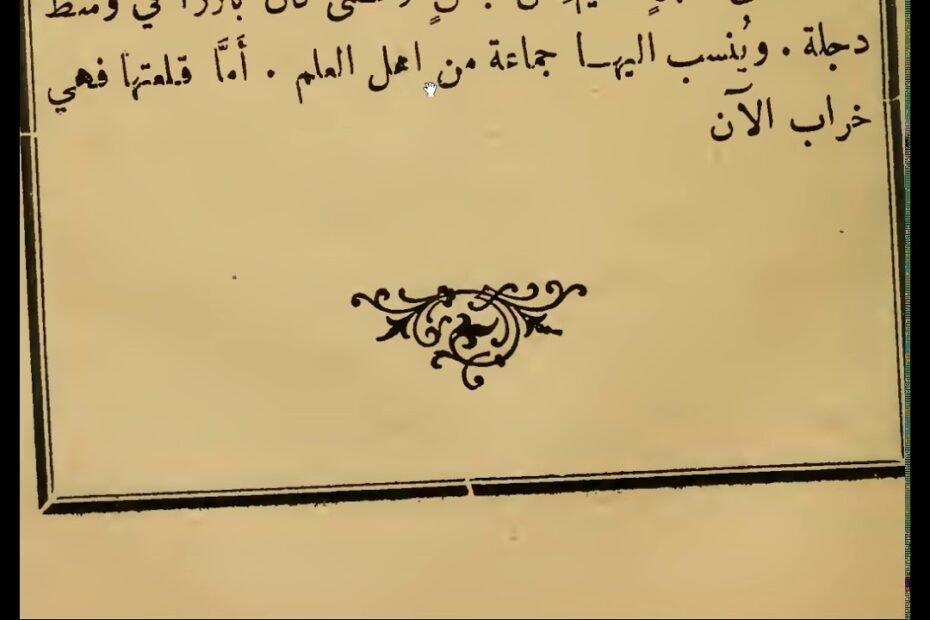 كان بارزًا في وسط
دجلة . ويُنسب اليهــا جماعة من اهل العلم . أَمَّا قلعتها فهي
خراب الآن